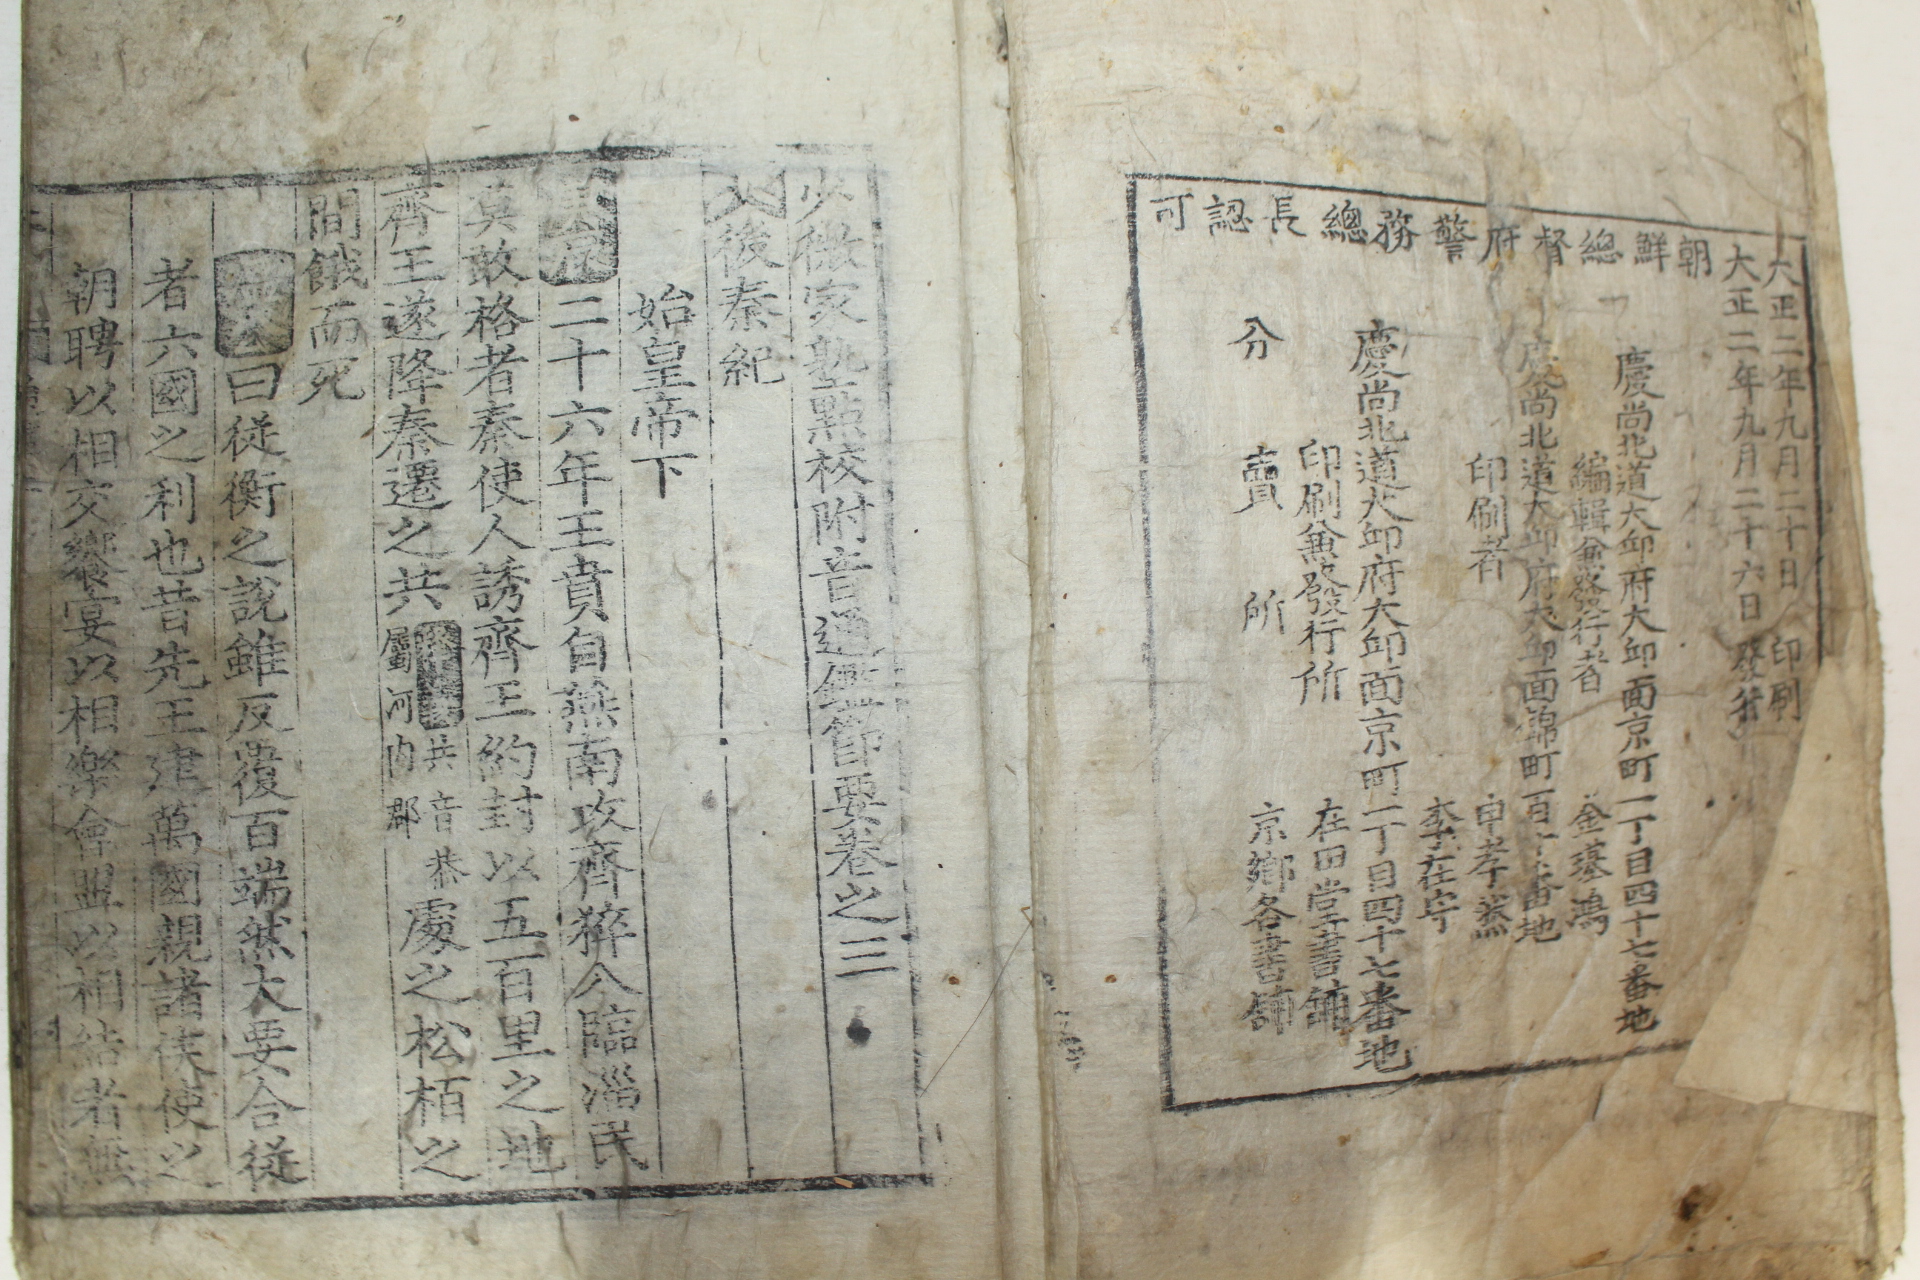 朝鮮總督府警務總長認可
大正二年九月二十日 印刷
大正二年九月二十六日 發行
慶尚北道大邱府大邱面京町一丁目四十七番地
編輯兼發行者 金璂鴻
慶尚北道大邱府大邱面錦町百 番地
印刷者 申孝
李在
慶尚北道大邱府大邱面京町一丁目四十七番地
印刷兼發行所 在田堂書鋪
分賣所 京鄉各書鋪
少微家塾點校附音通鑑節要卷之三
後秦紀
始皇帝下
二十六年王賁自燕南攻齊猝入臨淄民
莫敢格者秦使人誘齊王約封以五百里之地
齊王遂降秦遷之共 共音恭屬河內郡 處之松栢之
間餓而死
曰從衡之說雖反覆百端然大要合從
者六國之利也昔先王建萬國親諸侯使之
朝聘以相交饗宴以相樂會盟以相結者無